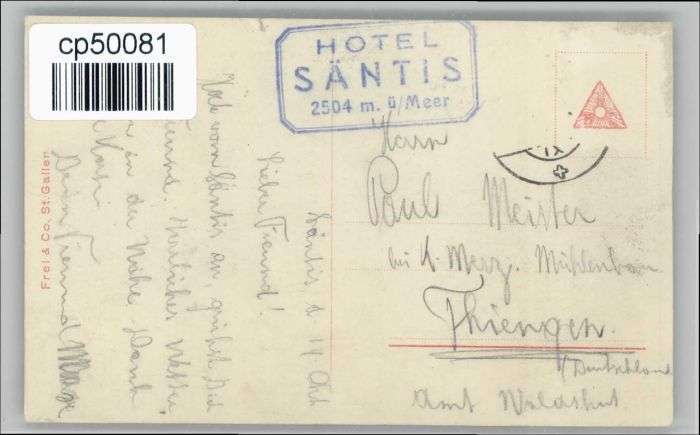 cp50081
HOTEL
SÄNTIS
2504 m. ü/Meer
XI
Herrn
Paul Meister
bei K. Merz. Mühlenbau
Thiengen.
Deutschland
Amt Waldshut
Säntis, d. 14. Okt
Lieber Freund!
vom Säntis an, grüßt Dich
Freund. Herrliches Wetter,
in der Nähe. Dank
Dein Freund Max
Frei & Co, St. Gallen